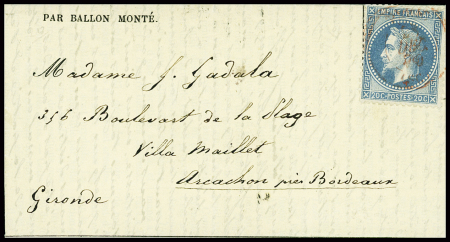 PAR BALLON MONTÉ.
EMPIRE FRANÇAIS
20C POSTES 20C
Madame J. Gadala
356 Boulevart de la Plage
Villa Maillet
Arcachon près Bordeaux
Gironde